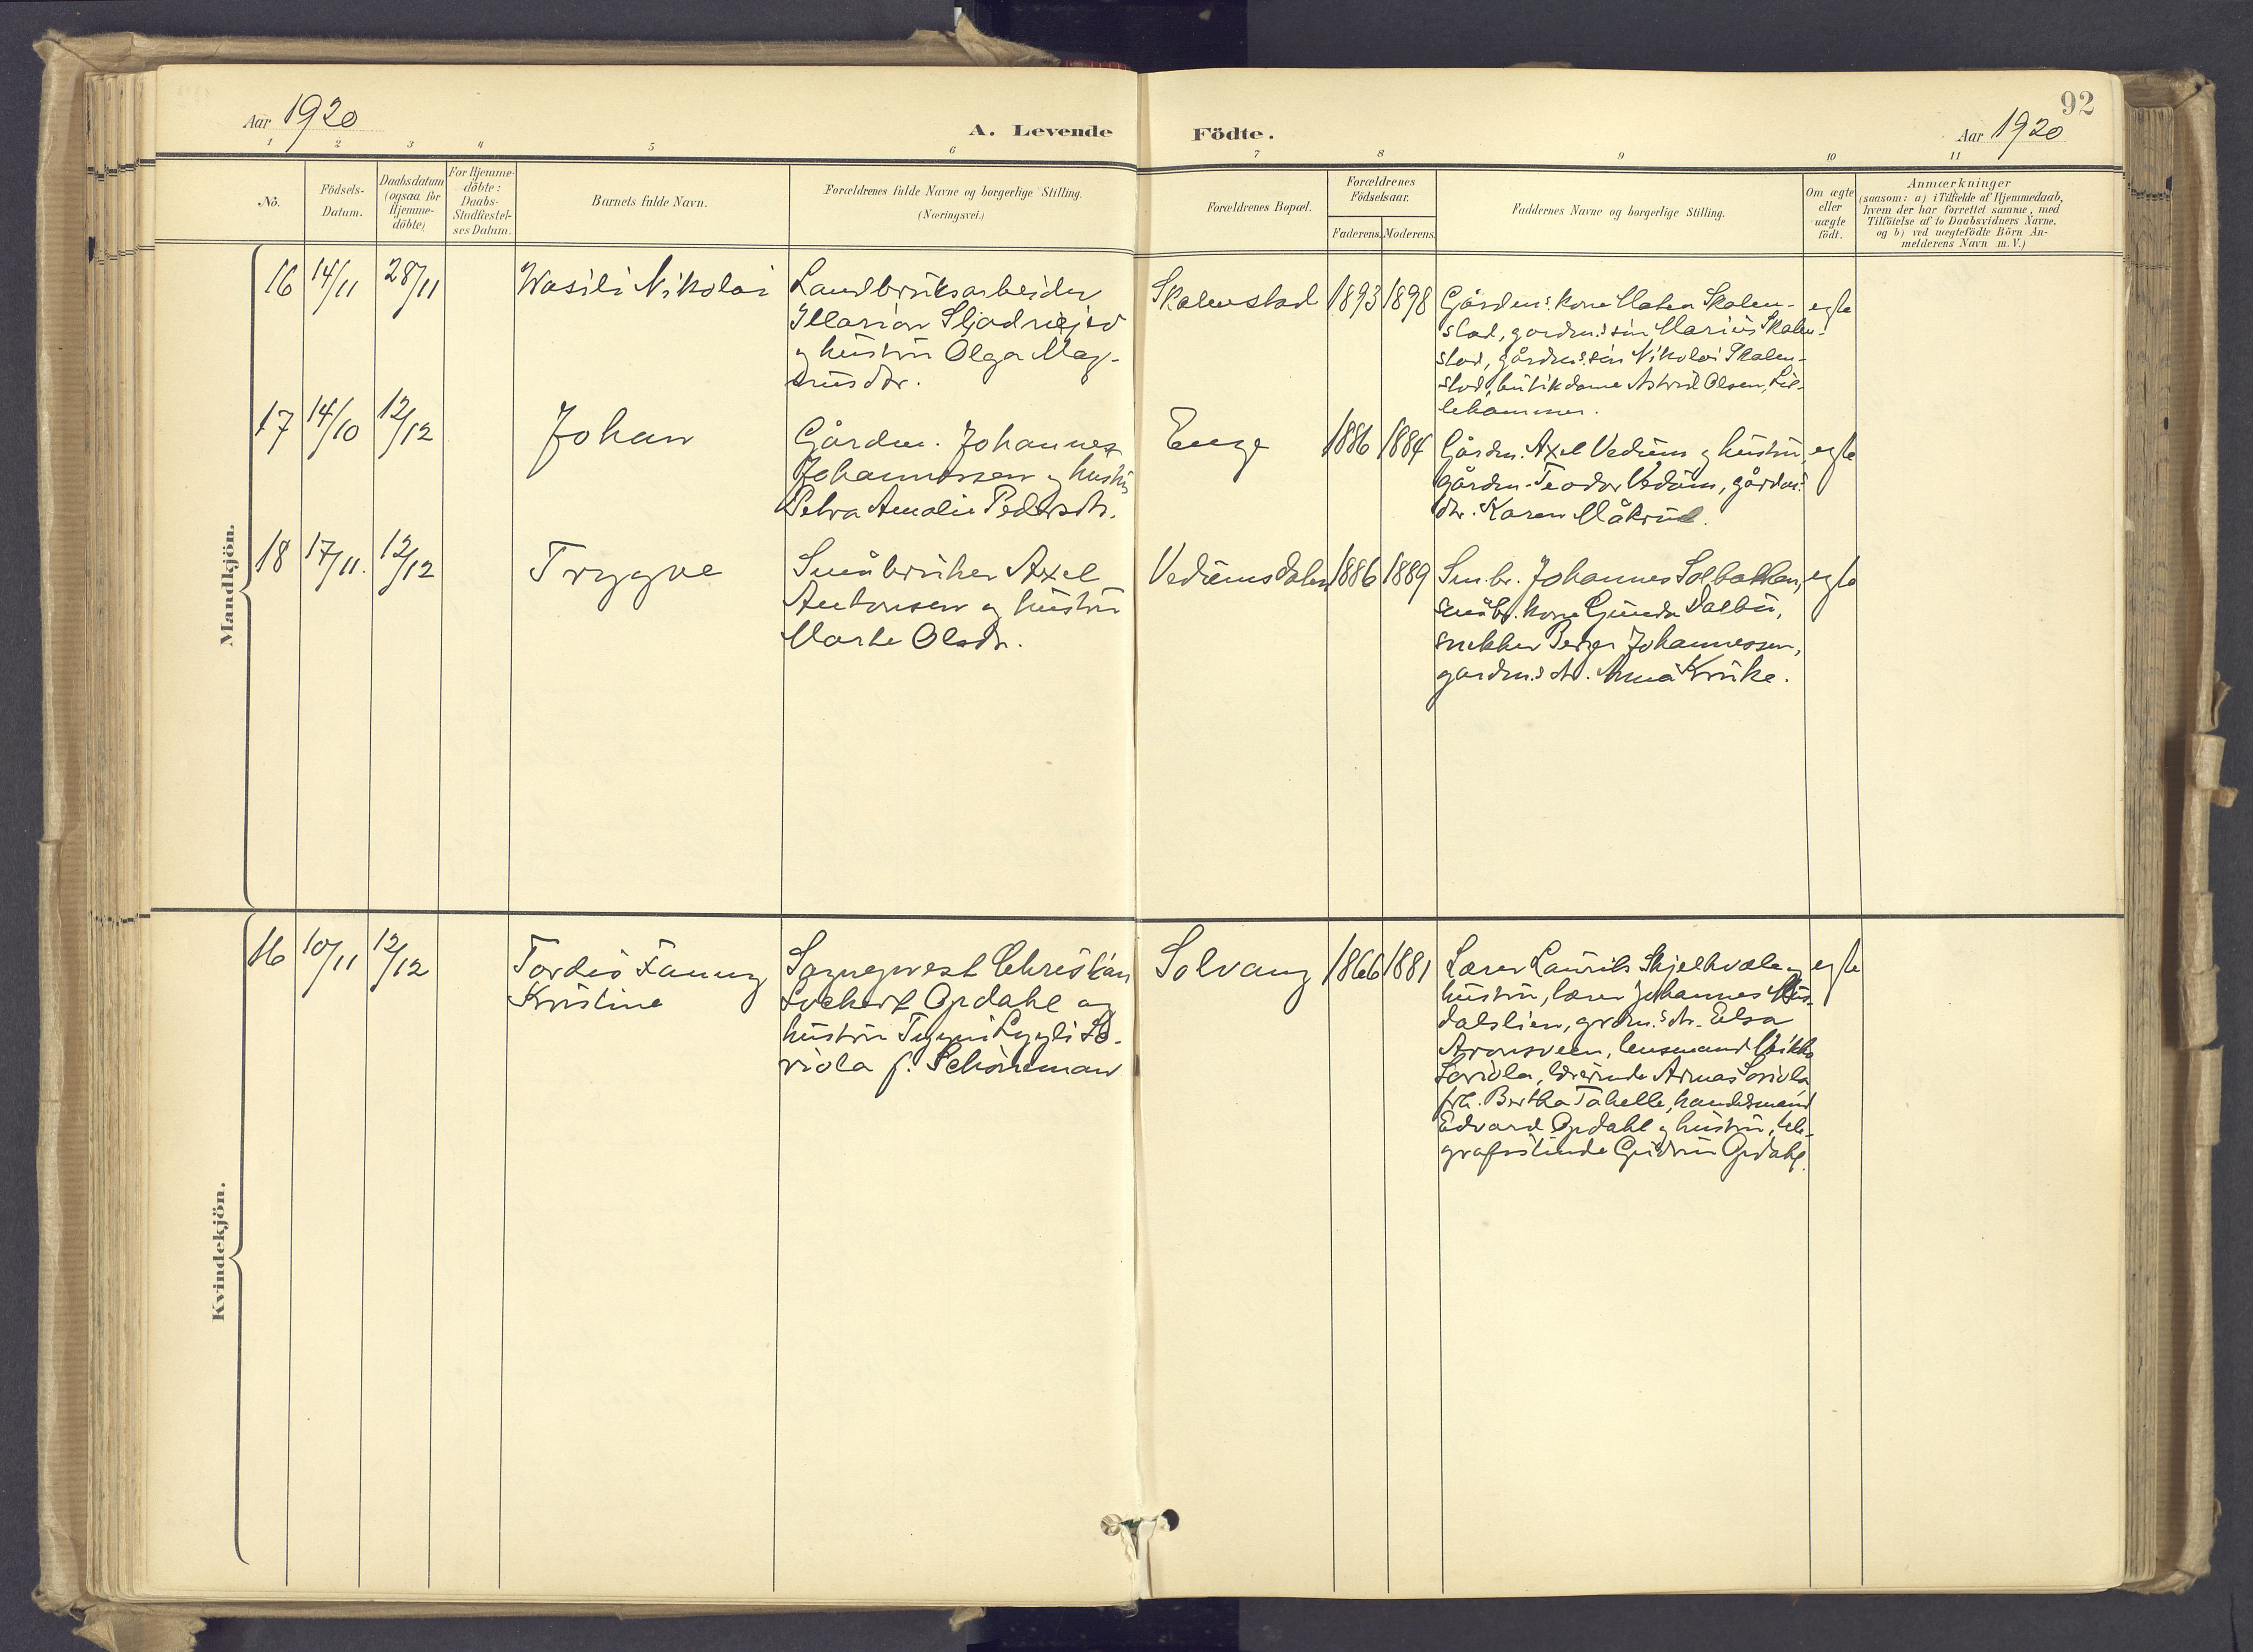 92
Aar 1920
A. Levende Födte.
Aar 1920
1 2 3 4 5 6 7 8 9 10 11
No.
Födsels-
Datum.
Daabsdatum
(ogsaa for
Hjemme-
döbte)
For Hjemme-
döbte:
Daabs-
Stadfæstel-
ses Datum.
Barnets fulde Navn.
Forældrenes fulde Navne og borgerlige Stilling.
(Næringsvei.)
Forældrenes Bopæl.
Forældrenes
Födselsaar.
Faderens. Moderens.
Faddernes Navne og borgerlige Stilling.
Om ægte
eller
uægte
födt.
Anmærkninger
(saasom: a) i Tilfælde af Hjemmedaab,
hvem der har forrettet samme, med
Tilföielse af to Daabsvidners Navne.
og b) ved uægtefödte Börn An-
melderens Navn m. V.)
Mandkjön.
16 14/11 28/11
Wasili Nikolai
Landbruksarbeider
Illarion
og hustru Olga Mag-
nusdtr.
Skalmstad
1893 1898
Gårdm.s kone Maten Skalm-
stad, gardm.s sön Marius Skalm-
stad, gårdm.s sön Nikolai Skalm-
stad, butikdame Astrid Olsen, Lil-
lehammer.
egte
17 14/10 12/12
Johan
Gårdm. Johannes
Johannessen og hustru
Petra Amalie Pedersdtr.
Enge
1886 1884
Gårdm. Axel Vedum og hustru,
gårdm. Teodor Vedum, gårdm.s
dtr. Karen Måkrud.
egte
18 17/11. 12/12
Trygve
Småbruker Axel
Antonsen og hustru
Marte Olsdtr.
Vedumsdalen
1886 1889
Sm.br. Johannes Solbakken,
småbr. kone Gunda Dalbu,
snekker Berger Johannessen,
gardm.s dtr. Anna Kruke.
egte
Kvindekjön.
16 10/11 12/12
Tordis Fanny
Kristine
Sogneprest Christian
Lockert Opdahl og
hustru Tyyni Lyyli Lo-
viola f. Schöneman
Solvang
1866 1881
Lærer Laurits Skjelkvale og
hustru, lærer Johannes
dalslien, grdm.s dtr. Elsa
Aronsveen, lensmand Veikko
Loviola, Armas Loviola
frk. Bertha Tåhelle, handelsmand
Edvard Opdahl og hustru, tele-
grafistinde Gudrun Opdahl.
egte